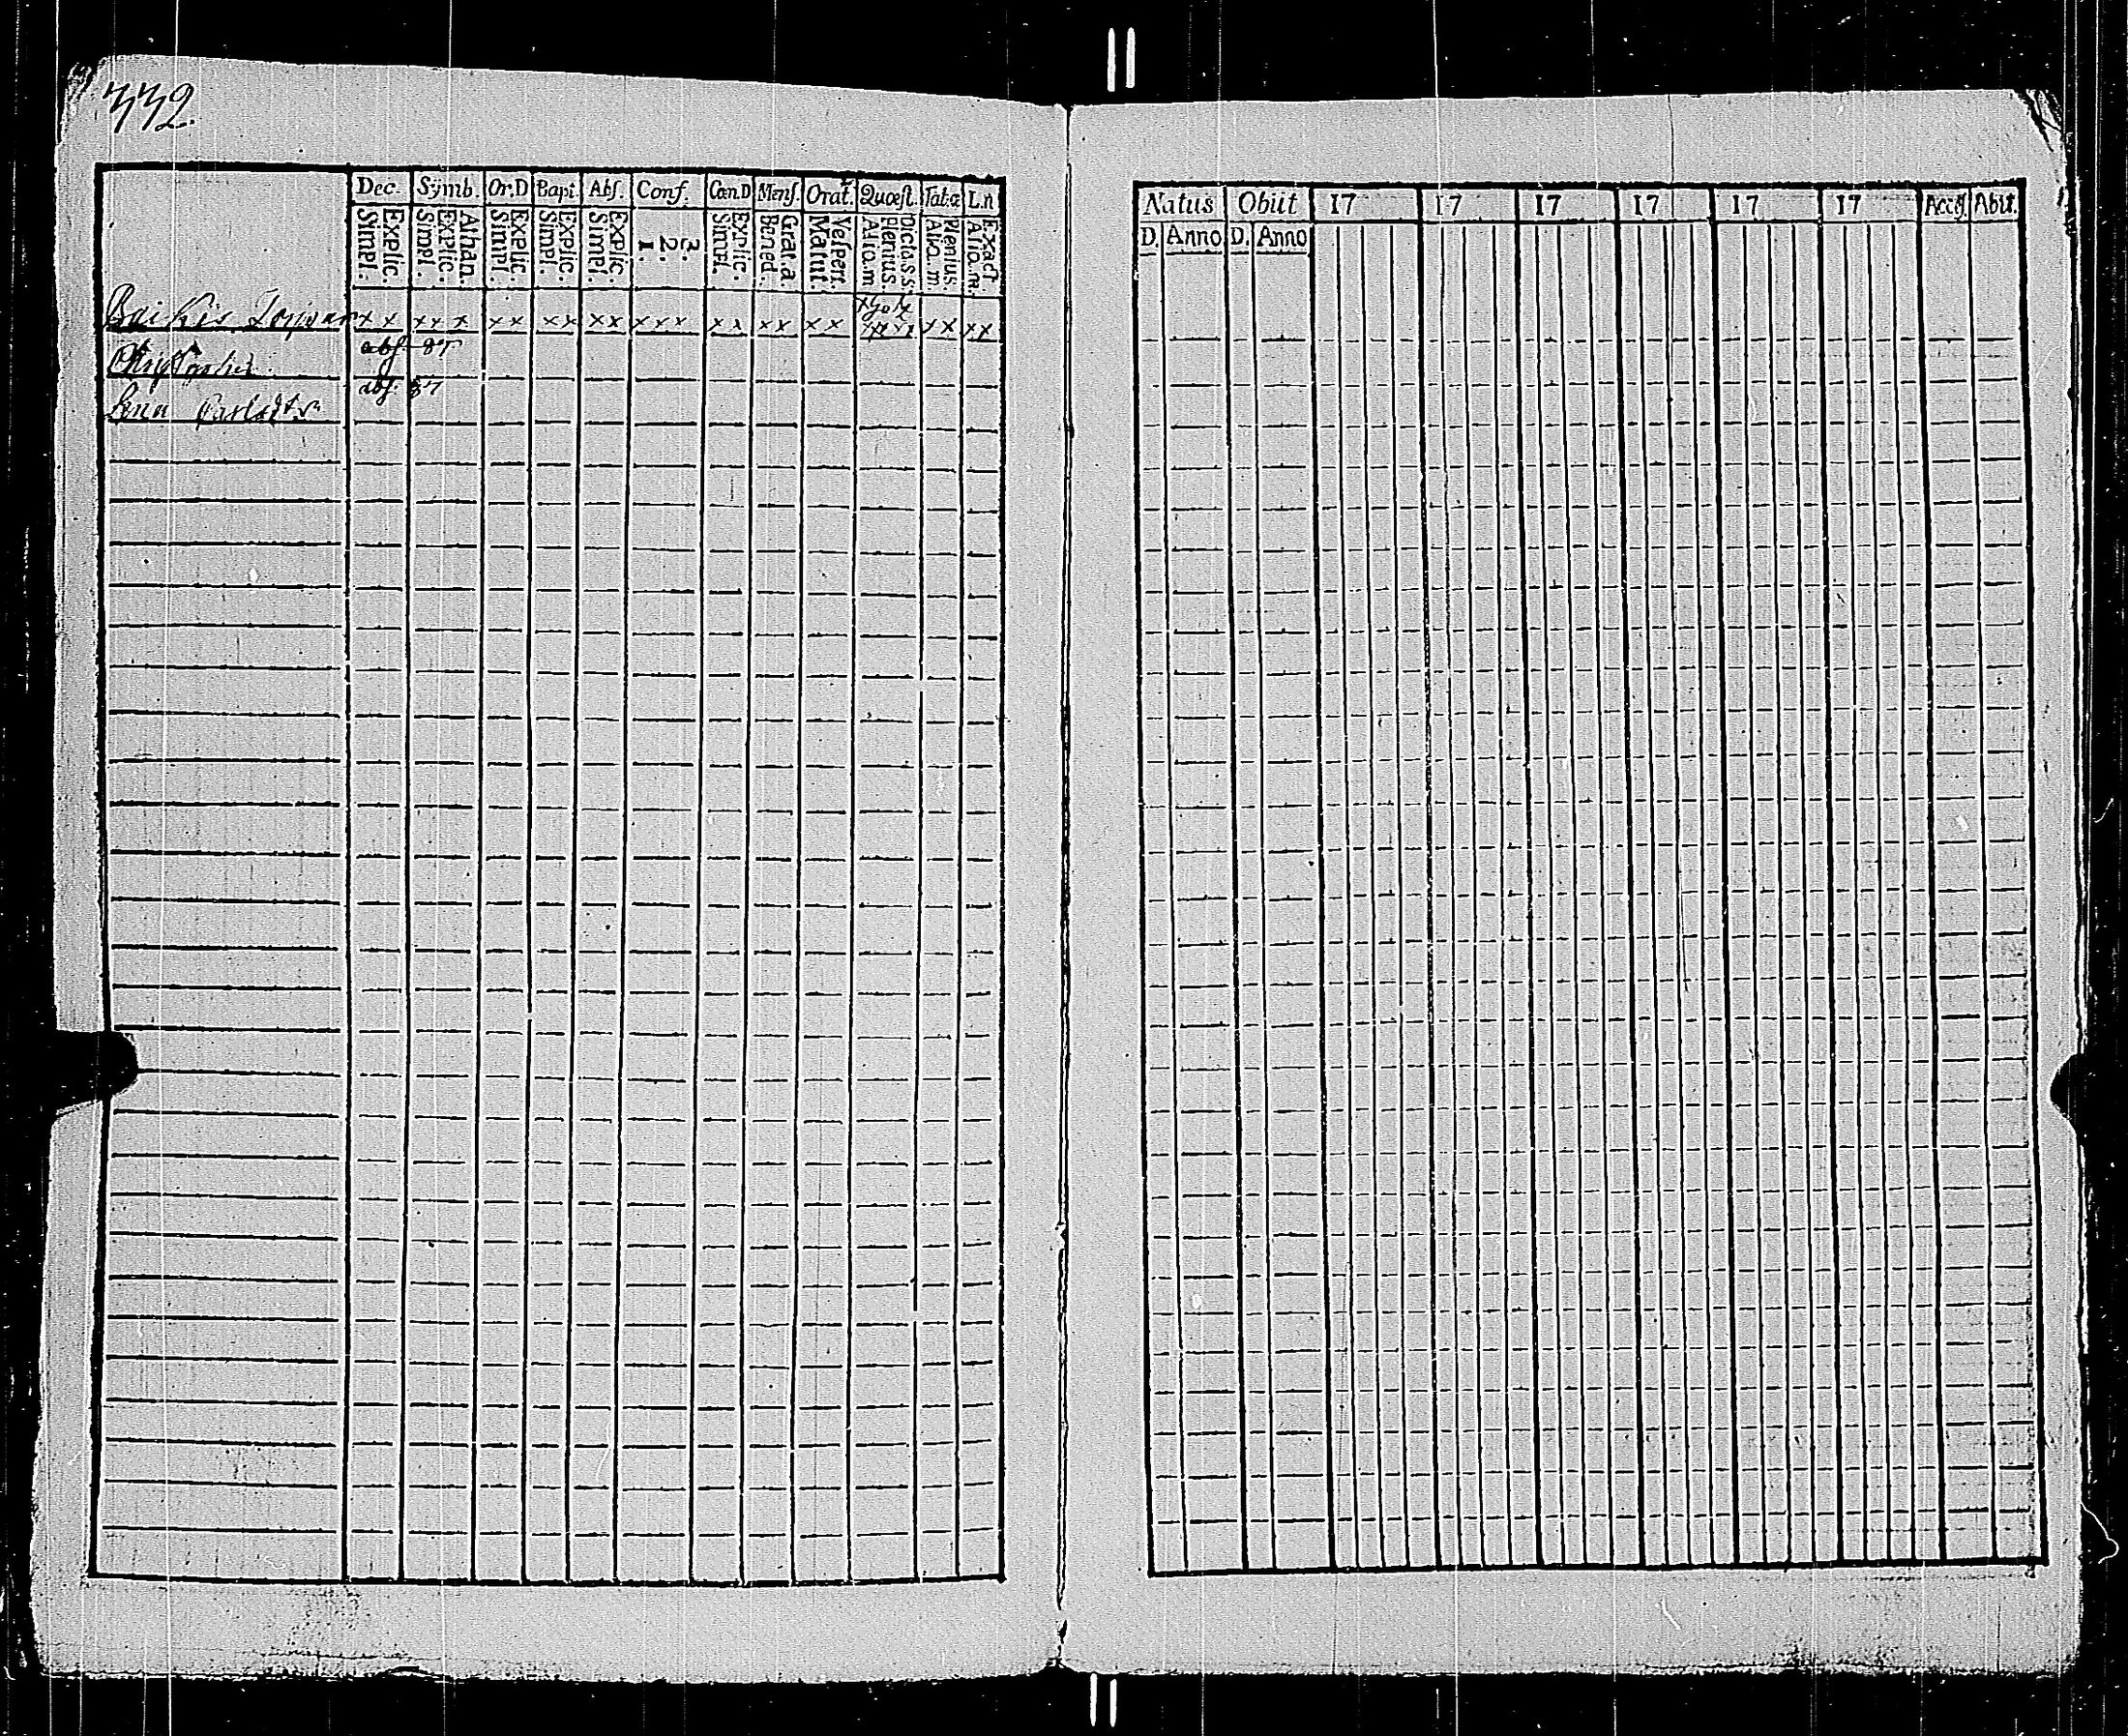 332.
Dec. Symb. Or.D Bapt. Abſ. Conf. Cœn.D Menſ. Orat. Quæſt. Tab.œ L.n
Simpl. Explic. Simpl. Explic. Athan. Simpl. Explic. Simpl. Explic. Simpl. Explic. 1. 2. 3. Simpl. Explic. Bened. Grat.a. Matut. Veſpert. Aliq.m Plenius. Dicta.s.s. Aliq.m Plenius. Aliq.m. Exact
x x x x x x x x x x x x x x x x x x x x x x x x x
abſ. 87
abſ. 87
Natus Obiit 17 17 17 17 17 17 Acceſ. Abit.
D. Anno D. Anno